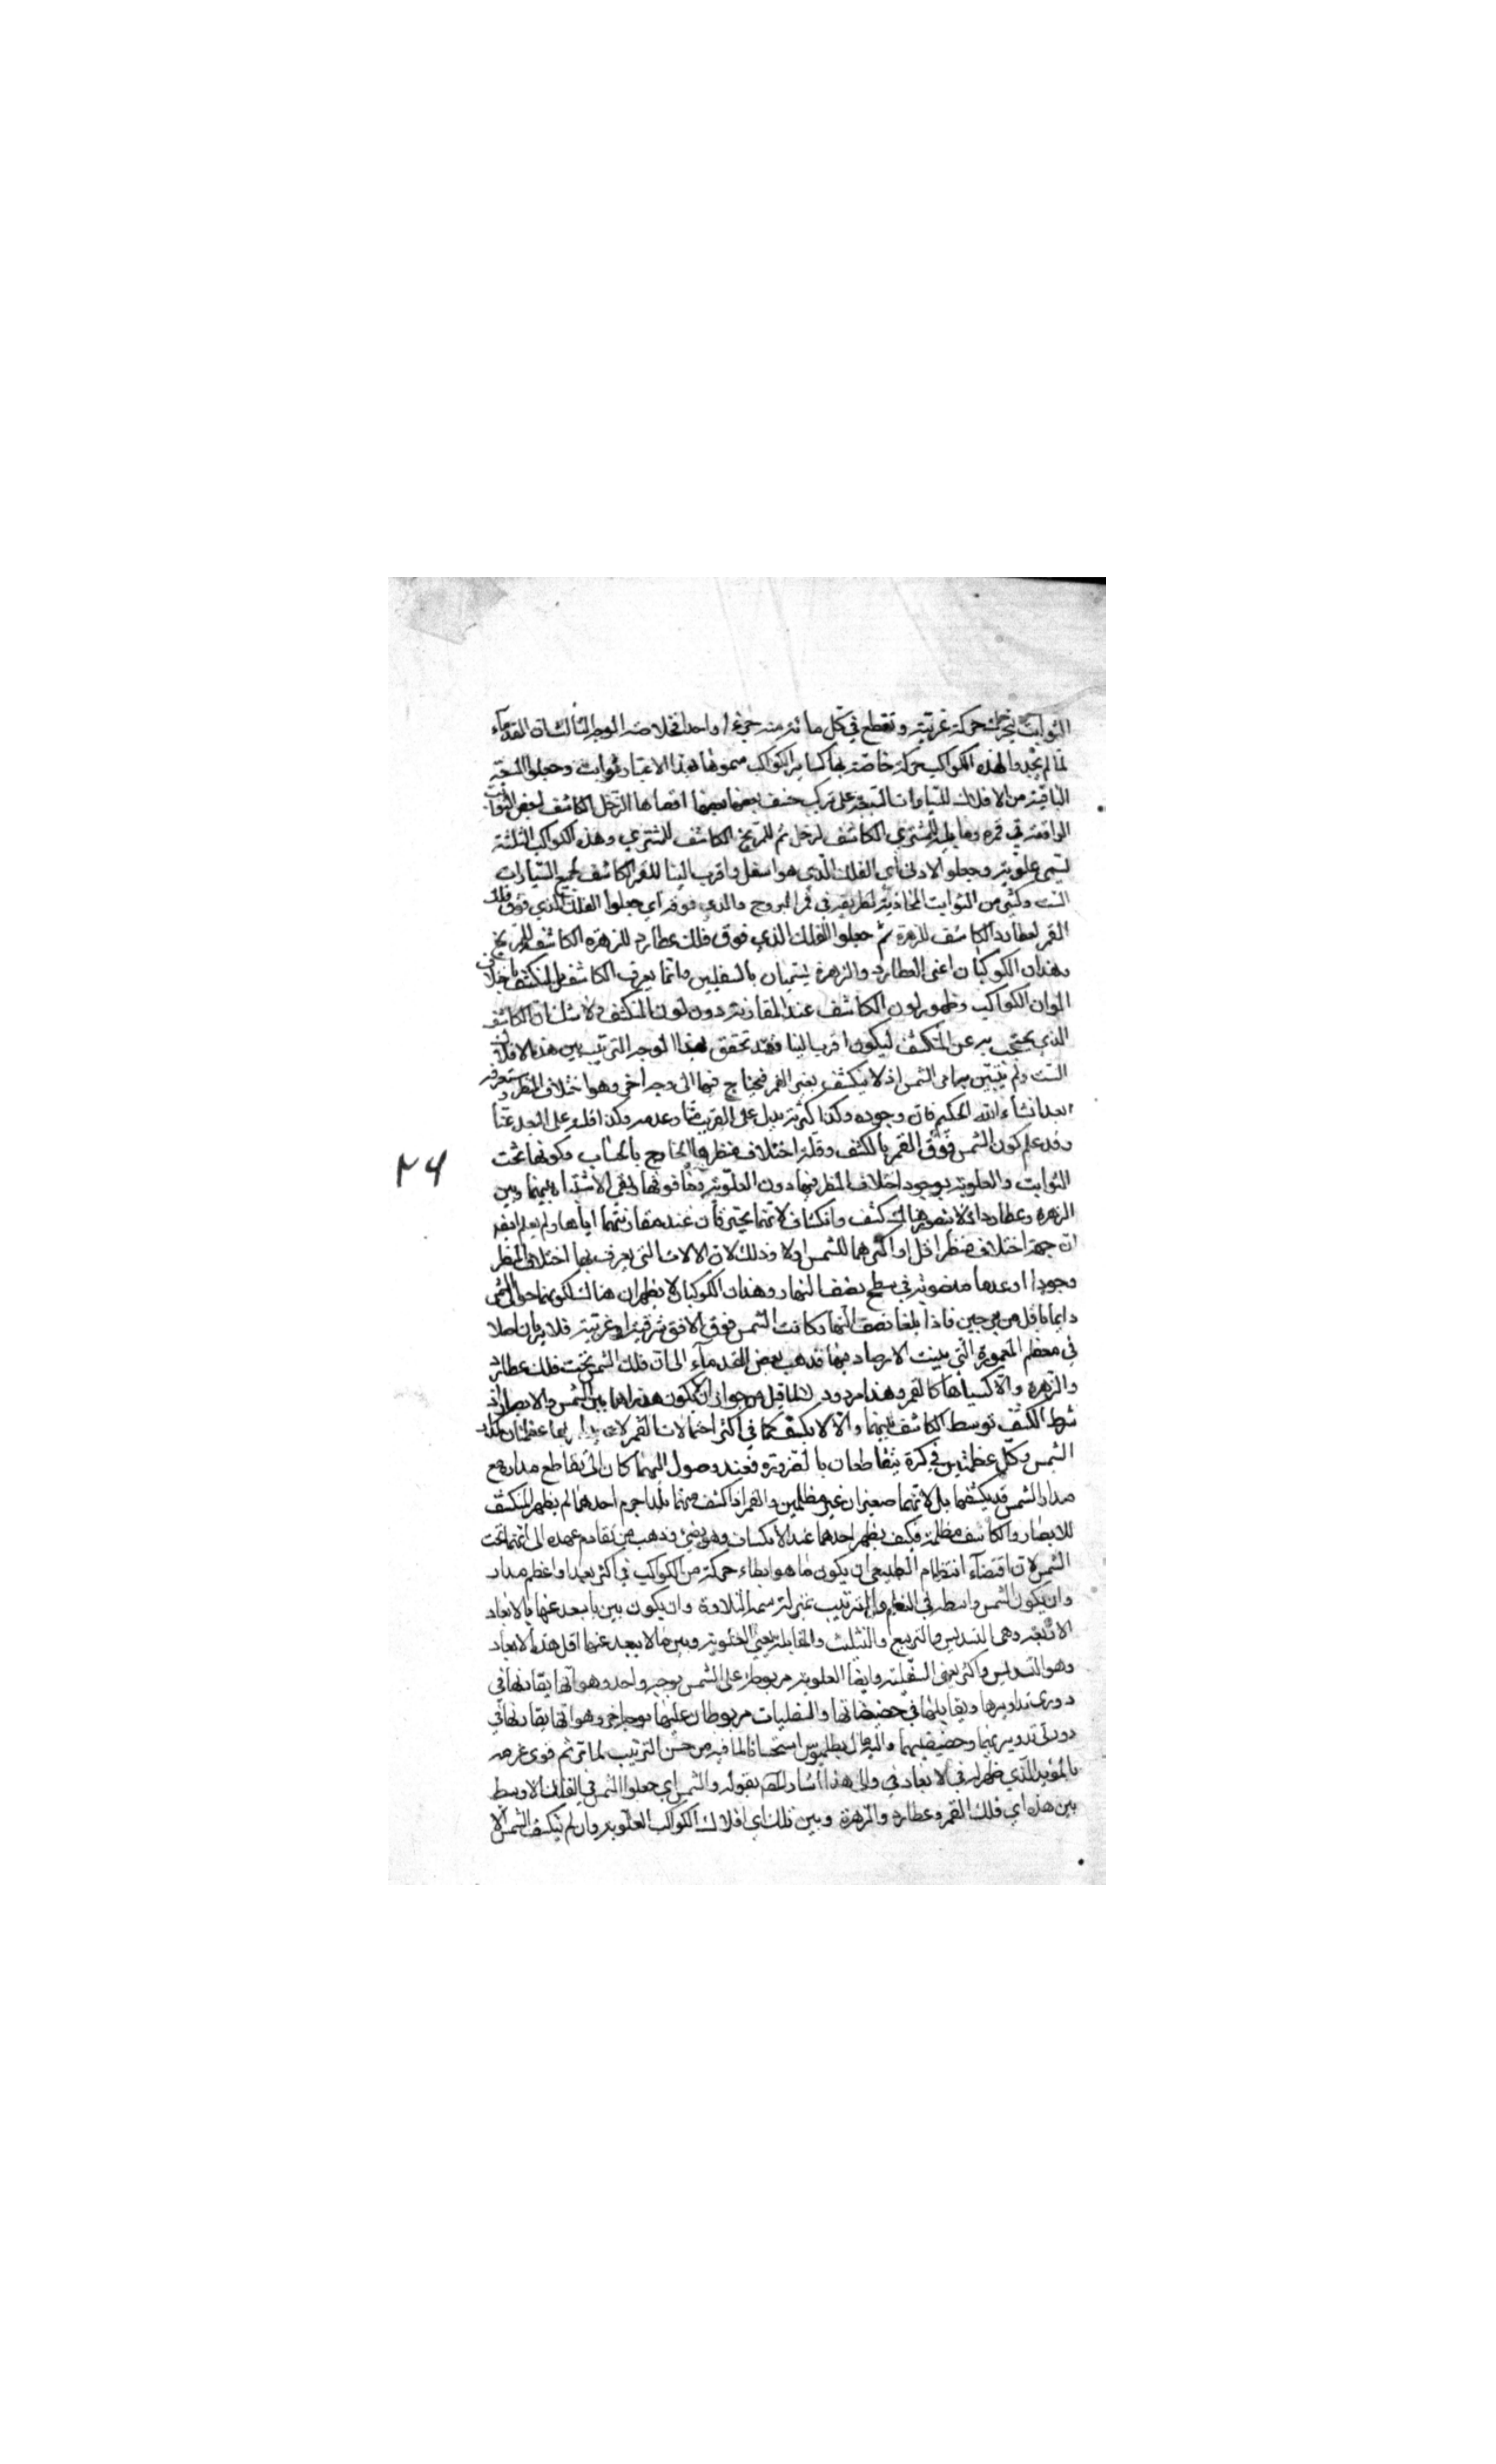 الثوابت يتحرك حركة غربية وتقطع في كل مائة منه جزءا واحدا فخلاصة الوجه الثالث ان القدماء
لما لم يجدوا لهذه الكواكب حركة خاصة بها كساير الكواكب سموها بهذا الاعتبار ثوابت وجعلوا السبعة
الباقية من الافلاك للسيارات السبعة على تركيب خسف بعضها بعضا اقصاها لزحل الكاشف لبعض الثوابت
الواقعة في ممره وما يليه للمشتري الكاشف لزحل ثم للمريخ الكاشف للمشتري وهذه الكواكب الثلثة
تسمى علوية وجعلوا الادنى اي الفلك الذي هو اسفل واقرب الينا للقمر الكاشف لجميع السيارات
الست وكثير من الثوابت المحاذية لطريقه في ممر البروج والذي فوقه اي جعلوا الفلك الذي فوق فلك
القمر لعطارد الكاشف للزهرة ثم جعلوا الفلك الذي فوق فلك عطارد للزهرة الكاشف للمريخ
وهذان الكوكبان اعني العطارد والزهرة يسميان بالسفليين وانما يعرف الكاشف من المنكشف باختلاف
الوان الكواكب وظهور لون الكاشف عند المقارنة دون لون المنكشف ولا شك ان الكاشف
الذي يحتجب به عن المنكشف ليكون اقرب الينا فقد تحقق بهذا الوجه الترتيب بين هذه الافلاك
الست ولم يتبين به امر الشمس اذ لا ينكشف بغير القمر فيحتاج فيها الى وجه اخر وهو اختلاف المنظر وستعرفه
بعد انشاء الله الحكيم فان وجوده وكذا اكثريته يدل على القرب منا وعدمه وكذا اقليته على البعد عنا
وقد علم كون الشمس فوق القمر بالكشف وقلة اختلاف منظرها الخارج بالحساب وكونها تحت
الثوابت والعلوية بوجود اختلاف المنظر فيها دون العلوية وما فوقها وبقي الاشتباه بينها وبين
الزهرة وعطارد اذ لا يتصور هناك كشف وانكشاف لانهما يحترقان عند مقارنتهما اياها ولم يعلم ايضا
ان جهة اختلاف منظر اقل او اكثر هما للشمس ام لا وذلك لان الالات التي يعرف بها اختلاف المنظر
وجودا او عدما منصوبة في سطح نصف النهار وهذان الكوكبان لا يظهران هناك لكونهما حوالى الشمس
دايما باقل من برجين فاذا بلغا نصف النهار كانت الشمس فوق الافق شرقية او غربية فلا يريان اصلا
في معظم المعمورة التي بنيت الارصاد فيها فذهب بعض القدماء الى ان فلك الشمس تحت فلك عطارد
والزهرة والا كسفاها كالقمر وهذا مردود لما قيل من جواز ان لا يكون مداراهما بين الشمس والابصار اذ
شرط الكشف توسط الكاشف بينهما والا لا ينكشف كما في اكثر اجتماعات القمر لان مداريهما عظيمتان كمدار
الشمس وكل عظيمتين في كرة يتقاطعان بالضرورة فعند وصول اليهما كان الى تقاطع مداره مع
مدار الشمس قد يكشفها بل لانهما صغيران غير مظلمين والقمر اذا كشف منها بمقدار جرم احدهما لم يظهر المنكشف
للابصار والكاشف مظلمة فكيف يظهر احدهما عند الانكساف وهو مضيء وذهب من تقادم عهده الى انهما تحت
الشمس لان اقتضاء انتظام الطبيعي ان يكون ما هو ابطاء حركة من الكواكب في اكثر بعدا واعظم مدار
وان يكون الشمس واسطة في النظم والترتيب بمنزلة شمسة القلادة وان يكون بين ما يبعد عنها بالابعاد
الاربعة وهي التسديس والتربيع والتثليث والمقابلة يعني العلوية وبين ما لا يبعد عنها اقل هذه الابعاد
وهو التسديس واكثر يعني السفلية وايضا العلوية مربوطة على الشمس بوجه واحد وهو انها يقارنها في
ذروى تداويرها ويقابلها في حضيضاتها والسفليات مربوطان عليها بوجه اخر وهو انها يقارنها في
ذروتي تدويريهما وحضيضيهما واليه مال بطلميوس استحسانا لما فيه من حسن الترتيب لما مر ثم قوى عزمه
بالمؤيد الذي ظهر له في الابعاد والى هذا اشار المصنف بقوله والشمس اي جعلوا الشمس في الفلك الاوسط
بين هذه اي فلك القمر وعطارد والزهرة وبين تلك اي افلاك الكواكب العلوية وان لم تنكشف الشمس الا
۲۴